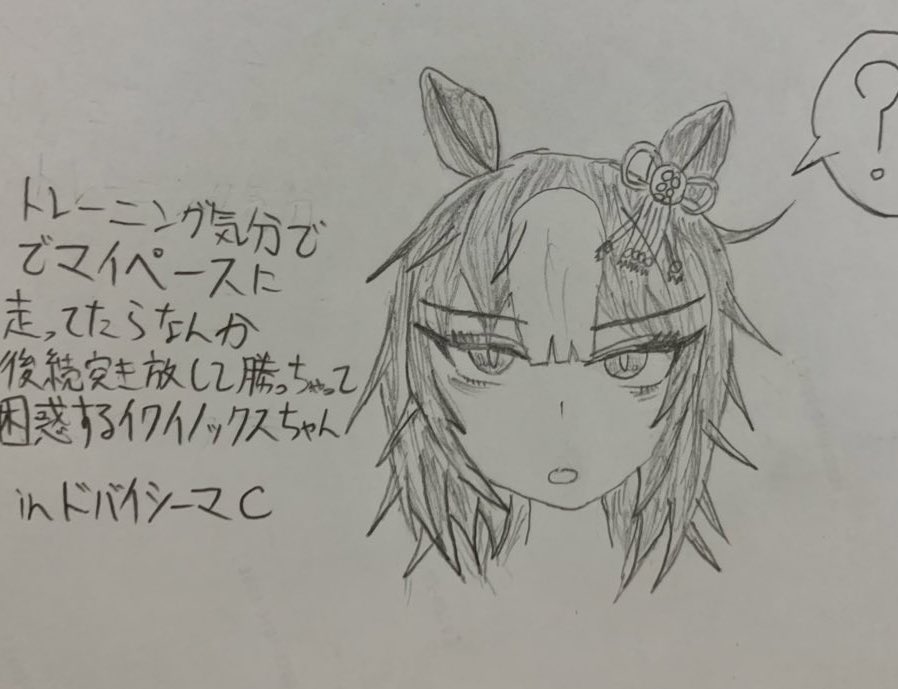 トレーニング気分で
でマイペースに
走ってたらなんか
後続突き放して勝っちゃって
困惑するイクイノックスちゃん
inドバイシーマC
?